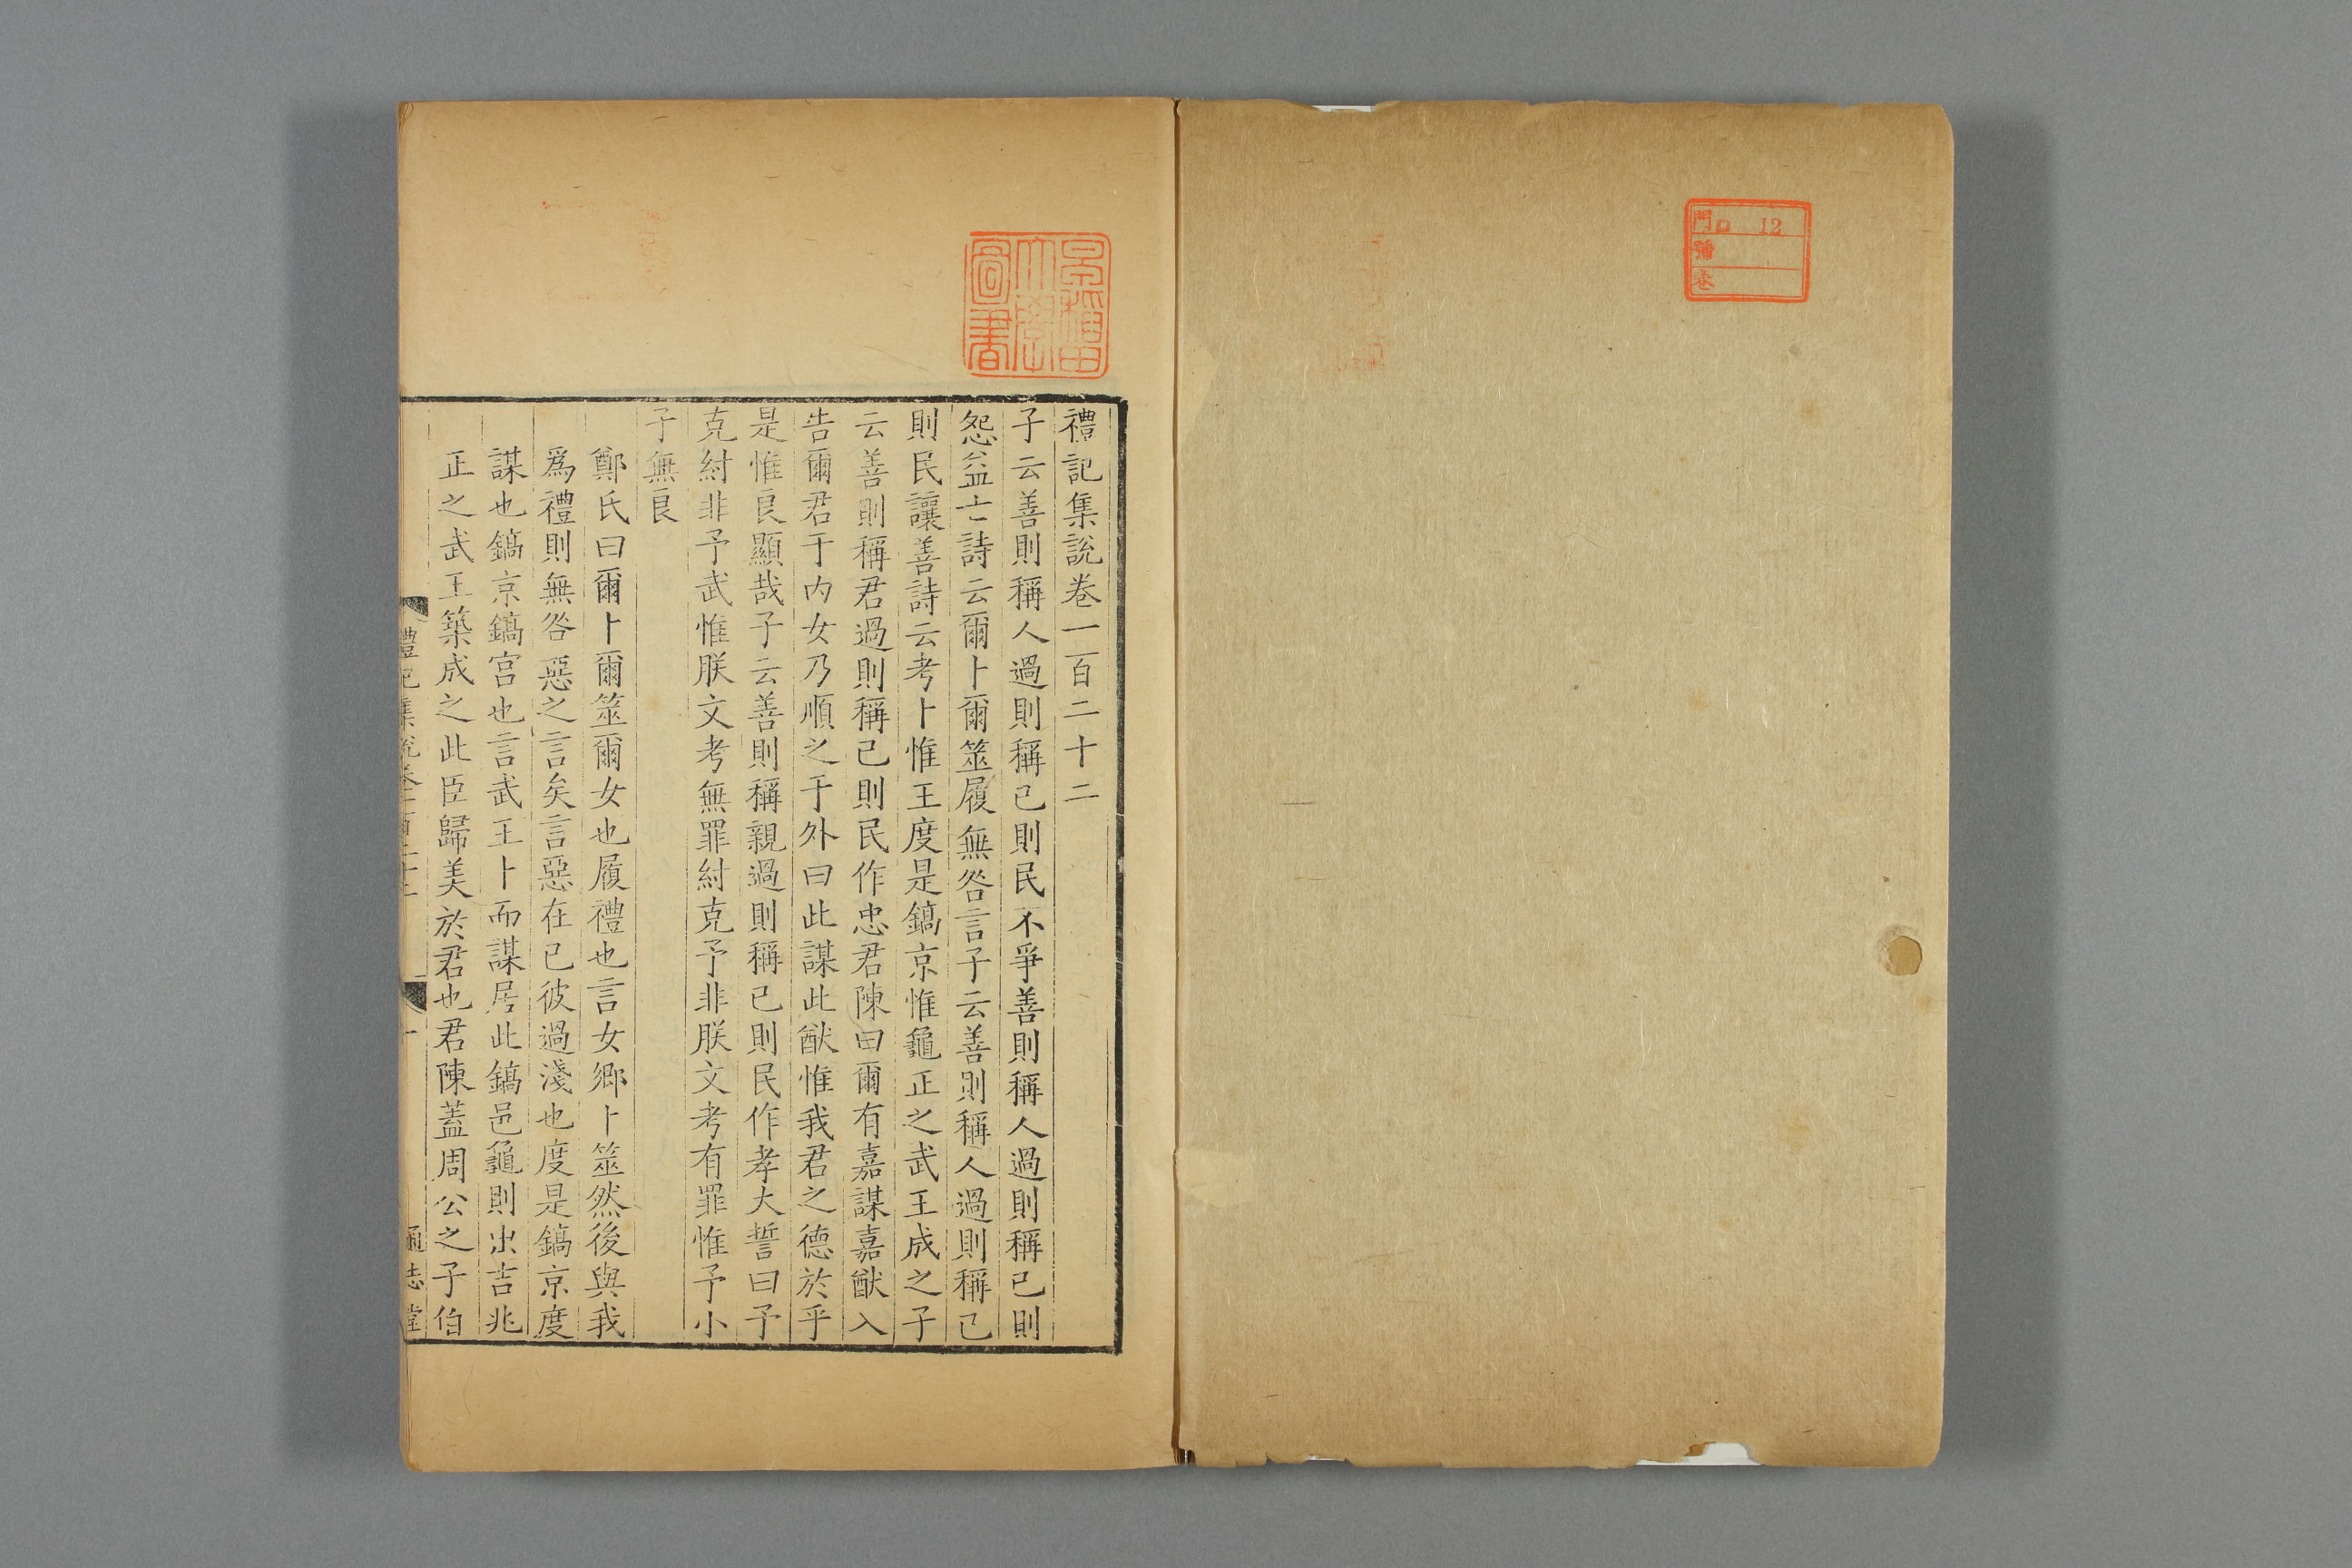 門 口 12
號
卷
早稲田
大學
圖書
禮記集說卷一百二十二
子云善則稱人過則稱己則民不爭善則稱人過則稱己則
怨益亡詩云爾卜爾筮履無咎言子云善則稱人過則稱己
則民讓善詩云考卜惟王度是鎬京惟龜正之武王成之子
云善則稱君過則稱己則民作忠君陳曰爾有嘉謀嘉猷入
告爾君于內女乃順之于外曰此謀此猷惟我君之德於乎
是惟良顯哉子云善則稱親過則稱己則民作孝大誓曰予
克紂非予武惟朕文考無罪紂克予非朕文考有罪惟予小
子無良
鄭氏曰爾卜爾筮爾女也履禮也言女鄉卜筮然後與我
爲禮則無咎惡之言矣言惡在己彼過淺也度是鎬京度
謀也鎬京鎬宮也言武王卜而謀居此鎬邑龜則出吉兆
正之武王築成之此臣歸美於君也君陳蓋周公之子伯
禮記集說卷一百二十二 一 通志堂